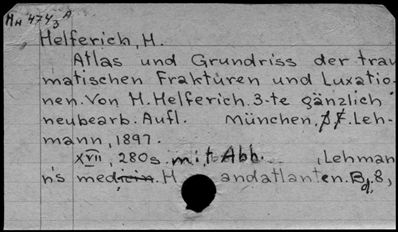 Mн 4743 A
Helferich, H.
Atlas und Grundriss der trau
matischen Frakturen und Luxatio-
nen. Von H. Helferich. 3-te gänzlich
neubearb. Aufl. München, Leh-
mann, 1897.
XVII, 280s. mit Abb. (Lehman
n's medicin. H andatlanten. Bd. 8,